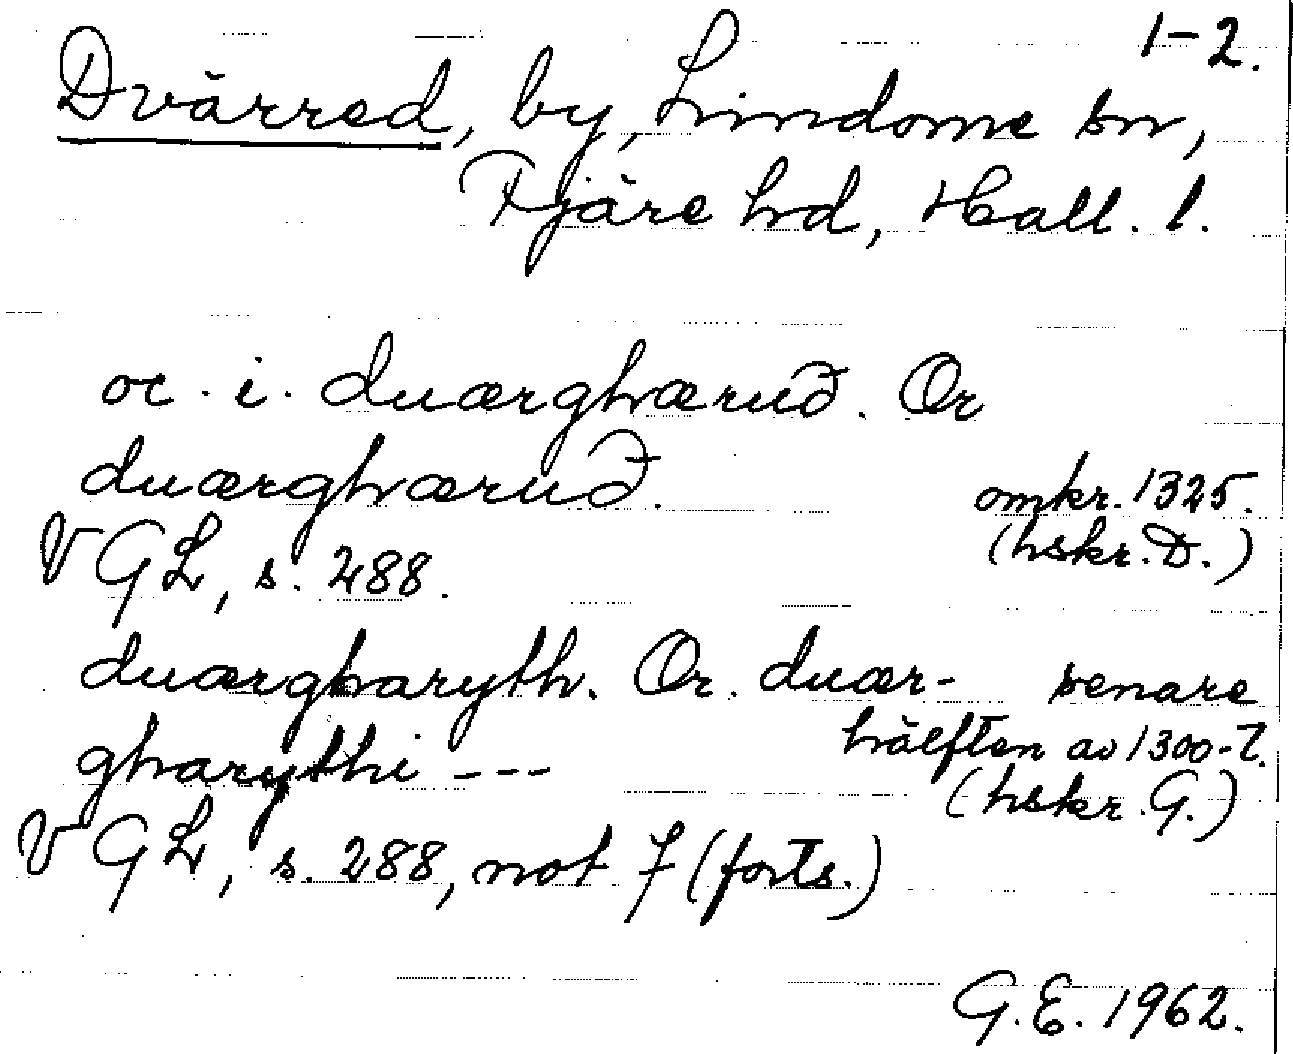 1-2.
Dvärred, by, Lindome sn,
Fjäre hd, Hall. l.
oc. i. duærghæruð. Or
duærghæruð.
omkr. 1325.
(hskr. D.)
VGL, s. 288.
duærgharyth. Or. duær- senare
gharythi --- hälften av 1300-t.
(hskr. G.)
VGL, s. 288, not 7 (forts.)
G.E. 1962.